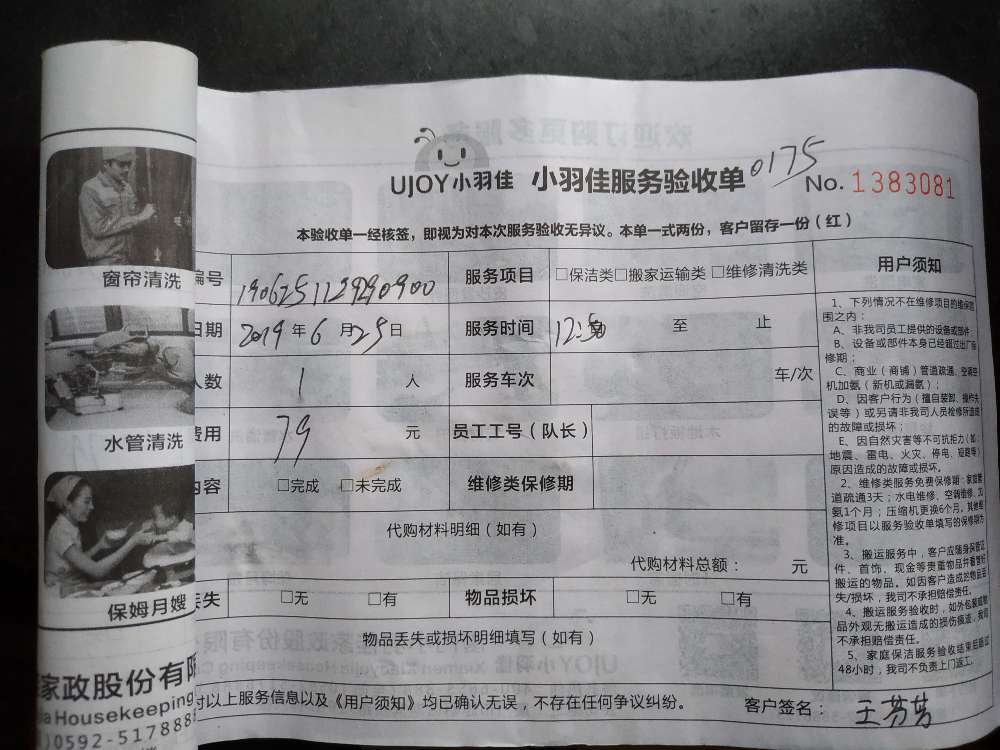 UJOY小羽佳 小羽佳服务验收单 0175 No. 1383081
本验收单一经核签，即视为对本次服务验收无异议。本单一式两份，客户留存一份（红）
编号 服务项目 □保洁类□搬家运输类 □维修清洗类
日期 2019年6月25日 服务时间 12:30 至 止
人数 1 人 服务车次 车/次
费用 79 元 员工工号（队长）
内容 □完成 □未完成 维修类保修期
代购材料明细（如有）
代购材料总额： 元
丢失 □无 □有 物品损坏 □无 □有
物品丢失或损坏明细填写（如有）
对以上服务信息以及《用户须知》均已确认无误，不存在任何争议纠纷。 客户签名： 王芬芳
用户须知
1、下列情况不在维修项目的维保范
围之内：
A、非我司员工提供的设备或部件；
B、设备或部件本身已经超过出厂保
修期；
C、商业（商铺）管道疏通、空调空
机加氨（新机或漏氨）；
D、因客户行为（擅自装卸、操作失
误等）或另请非我司人员检修所造成
的故障或损坏；
E、因自然灾害等不可抗拒力（如：
地震、雷电、火灾、停电、短路等）
原因造成的故障或损坏。
2、维修类服务免费保修期：家庭管
道疏通3天；水电维修、空调维修、加
氨1个月；压缩机更换6个月。其他维
修项目以服务验收单填写的保修期为
准。
3、搬运服务中，客户应随身保管证
件、首饰、现金等贵重物品并看管好
搬运的物品。如因客户造成的物品丢
失/损坏，我司不承担赔偿责任。
4、搬运服务验收时，如外包装或物
品外观无搬运造成的损伤痕迹，我司
不承担赔偿责任。
5、家庭保洁服务验收结束后超过
48小时，我司不负责上门返工。
窗帘清洗
水管清洗
保姆月嫂
家政股份有限
Housekeeping
)0592-5178888